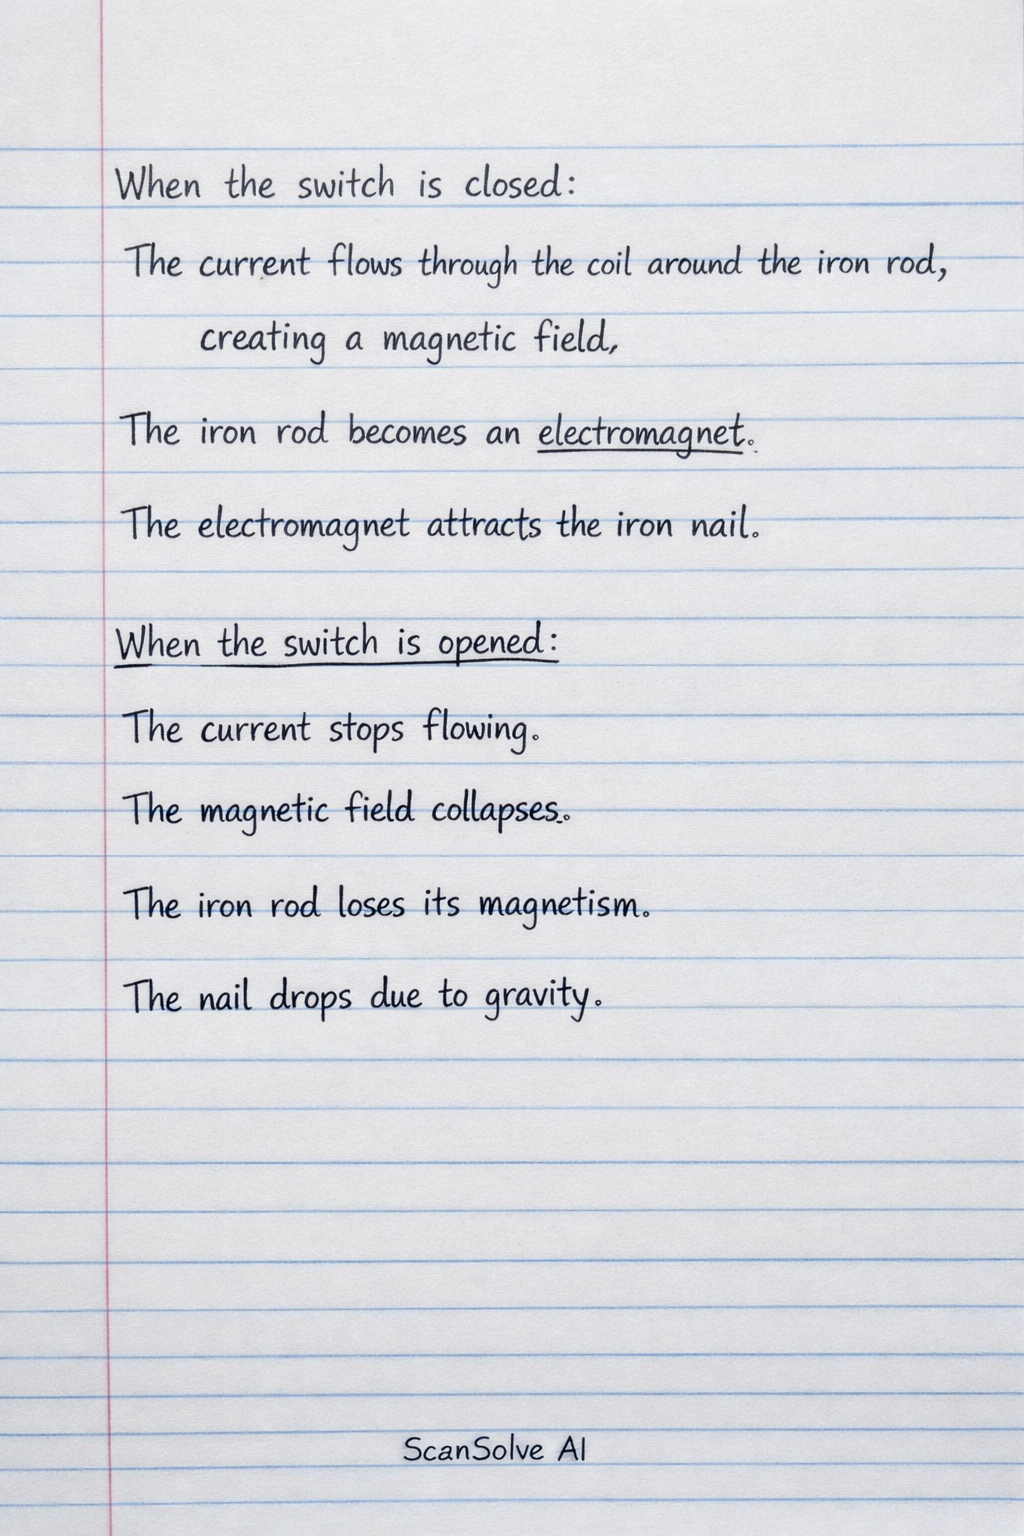 When the switch is closed:
The current flows through the coil around the iron rod,
creating a magnetic field,
The iron rod becomes an electromagnet.
The electromagnet attracts the iron nail.
When the switch is opened:
The current stops flowing.
The magnetic field collapses..
The iron rod loses its magnetism.
The nail drops due to gravity.
ScanSolve AI